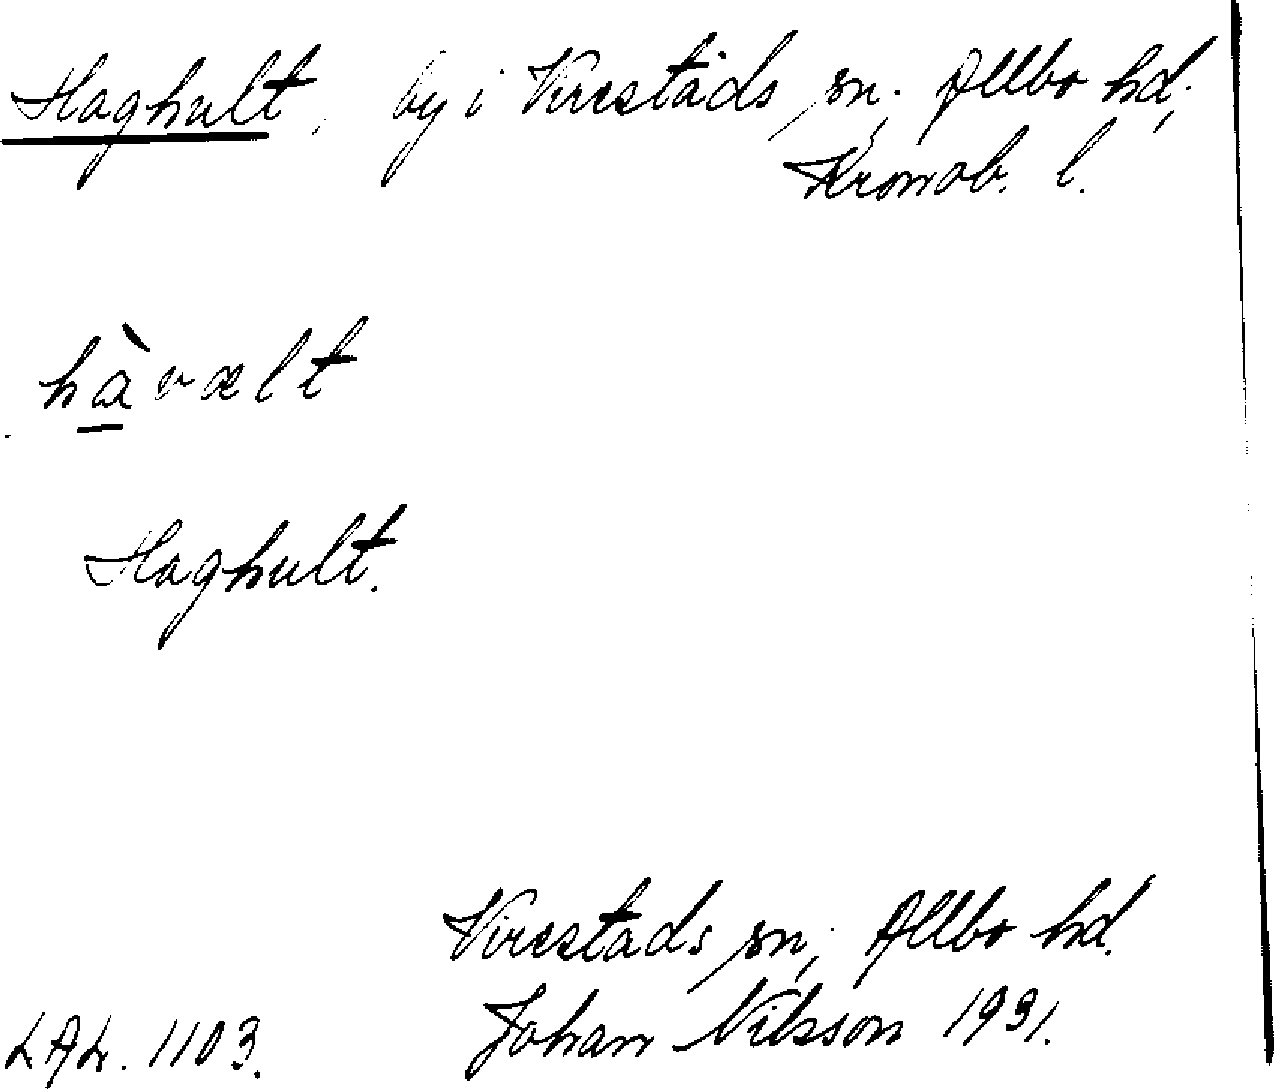 Haghult, by i Virestads sn, Allbo hd,
Kronob. l.
hàvælt
Haghult.
Virestads sn, Allbo hd.
Johan Nilsson 1931.
LAL. 1103.